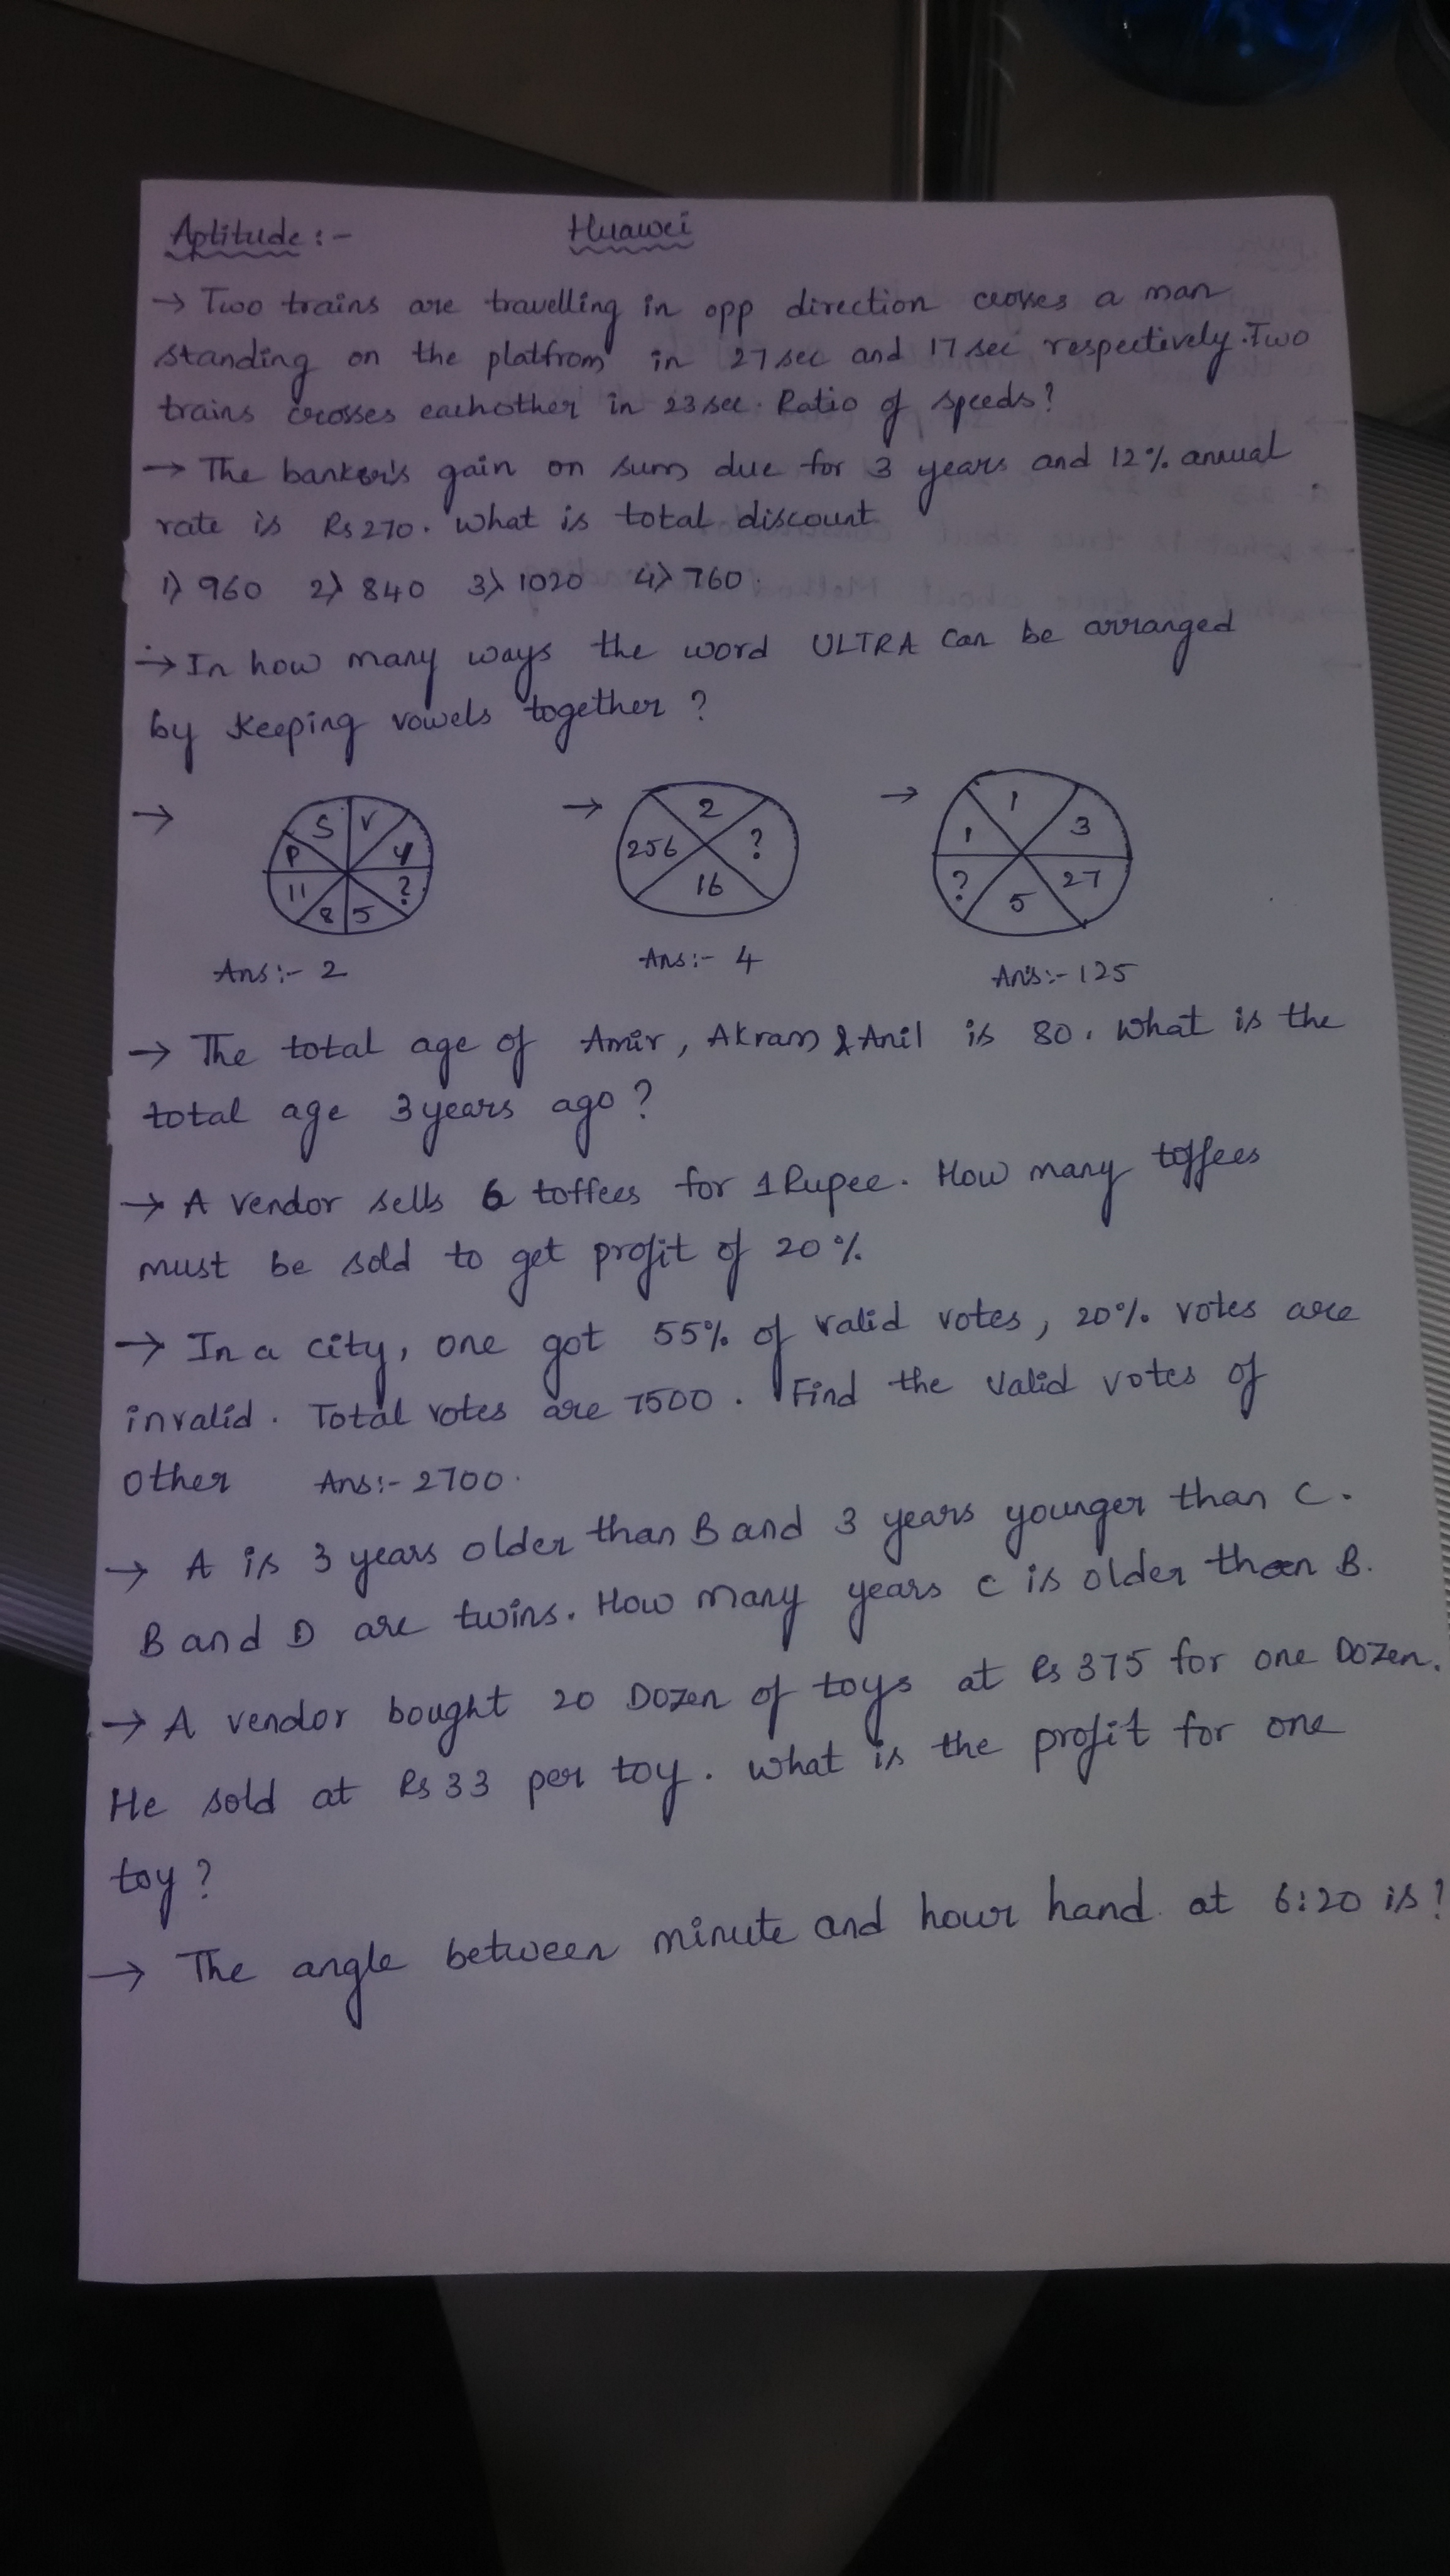 Aptitude:- Huawei
→ Two trains are travelling in opp direction crosses a man
standing on the platfrom in 27sec and 17sec respectively. Two
trains crosses eachother in 23sec. Ratio of speeds?
→ The banker's gain on sum due for 3 years and 12% annual
rate is Rs270. What is total discount
1) 960 2) 840 3) 1020 4) 760.
→ In how many ways the word ULTRA can be arranged
by keeping vowels together?
→ S V P Y 11 ? 8 5
→ 2 256 ? 16
→ 1 1 3 ? 27 5
Ans:- 2 Ans:- 4 Ans:- 125
→ The total age of Amir, Akram & Anil is 80. What is the
total age 3years ago?
→ A vendor sells 6 toffees for 1 Rupee. How many toffees
must be sold to get profit of 20%.
→ In a city, one got 55% of valid votes, 20% votes are
invalid. Total votes are 7500. Find the valid votes of
other Ans:- 2700.
→ A is 3 years older than B and 3 years younger than C.
B and D are twins. How many years C is older than B.
→ A vendor bought 20 Dozen of toys at Rs 375 for one Dozen.
He sold at Rs 33 per toy. What is the profit for one
toy?
→ The angle between minute and hour hand at 6:20 is?